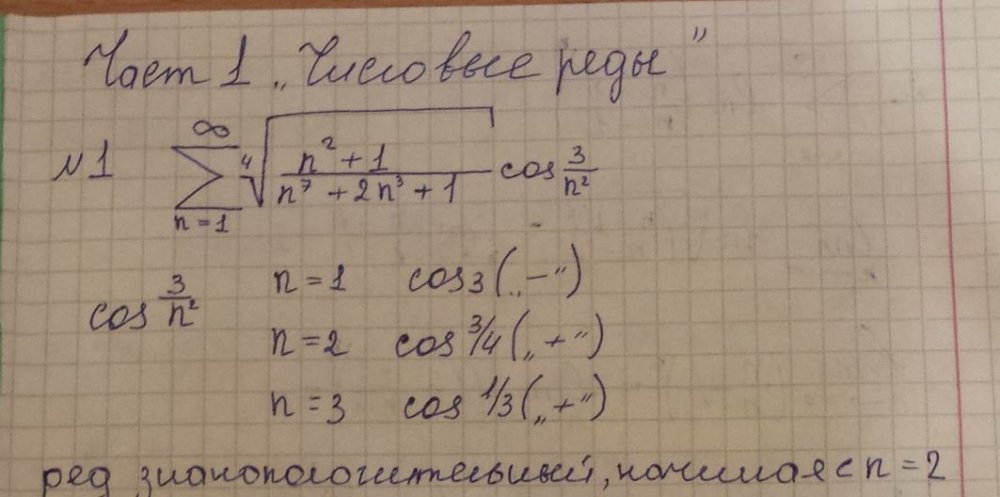 Част 1 „Числовые реды"
№1 ∞ ∑ n=1 ⁴√((n² + 1)/(n⁷ + 2n³ + 1)) cos 3/n²
cos 3/n² n = 1 cos 3 („−“)
n = 2 cos 3/4 („+“)
n = 3 cos 1/3 („+“)
ред знакоположительный, начиная с n = 2